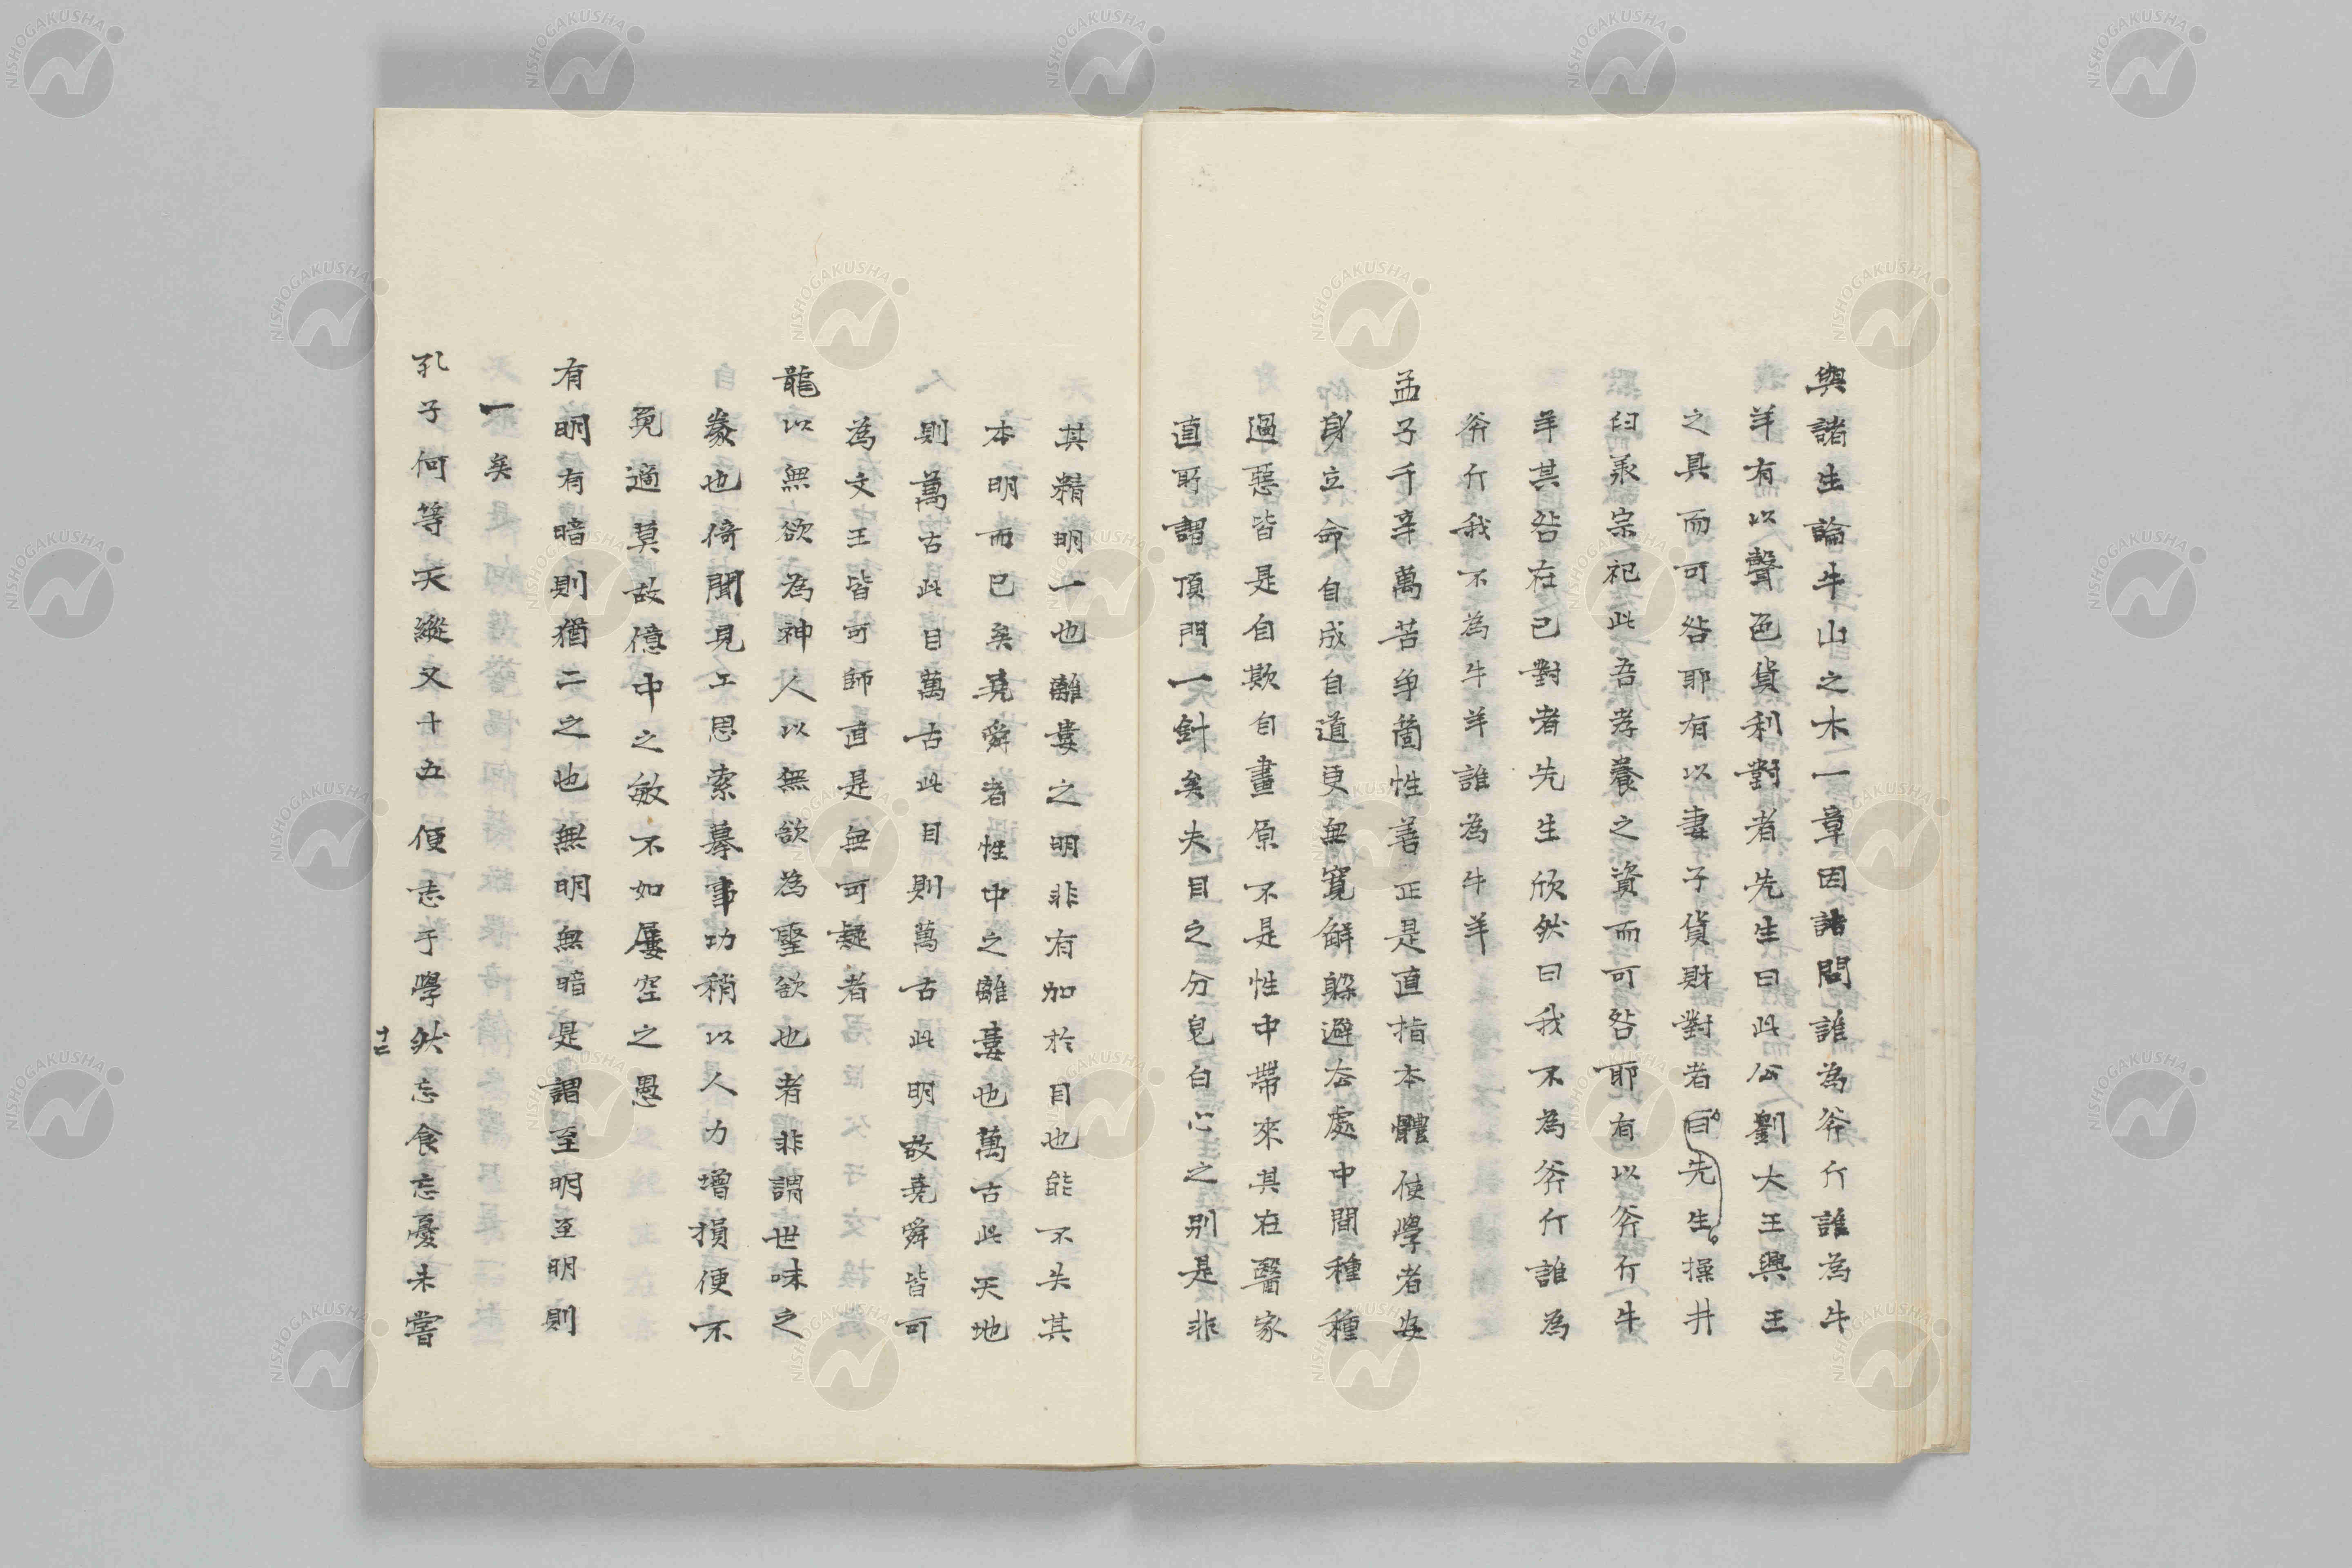 與諸生論牛山之木一章因諸問誰為斧斤誰為牛
羊有以聲色貨利對者先生曰此公劉大王興王
之具而可咎耶有以妻子貨財對者曰先生操井
臼承宗祀此吾孝養之資而可咎耶有以斧斤牛
羊其咎在己對者先生欣然曰我不為斧斤誰為
斧斤我不為牛羊誰為牛羊
孟子千辛萬苦争箇性善正是直指本體使學者安
身立命自成自道更無寬解躱避在處中間種種
過惡皆是自欺自畫原不是性中帶來其在醫家
直所謂頂門一針矣夫目之分皃白心之别是非
其精明一也離婁之明非有加於目也能不失其
本明而已矣堯舜者性中之離婁也萬古此天地
則萬古此目萬古此目則萬古此明故堯舜皆可
為文王皆可師直是無可疑者
龍以無欲為神人以無欲為聖欲也者非謂世味之
豢也倚聞見工思索摹事功稍以人力增損便不
免適莫故億中之敏不如屢空之愚
有明有暗則猶二之也無明無暗是謂至明至明則
一矣
孔子何等天縱又十五便志于學然忘食忘憂未嘗
十二
NISHOGAKUSHA